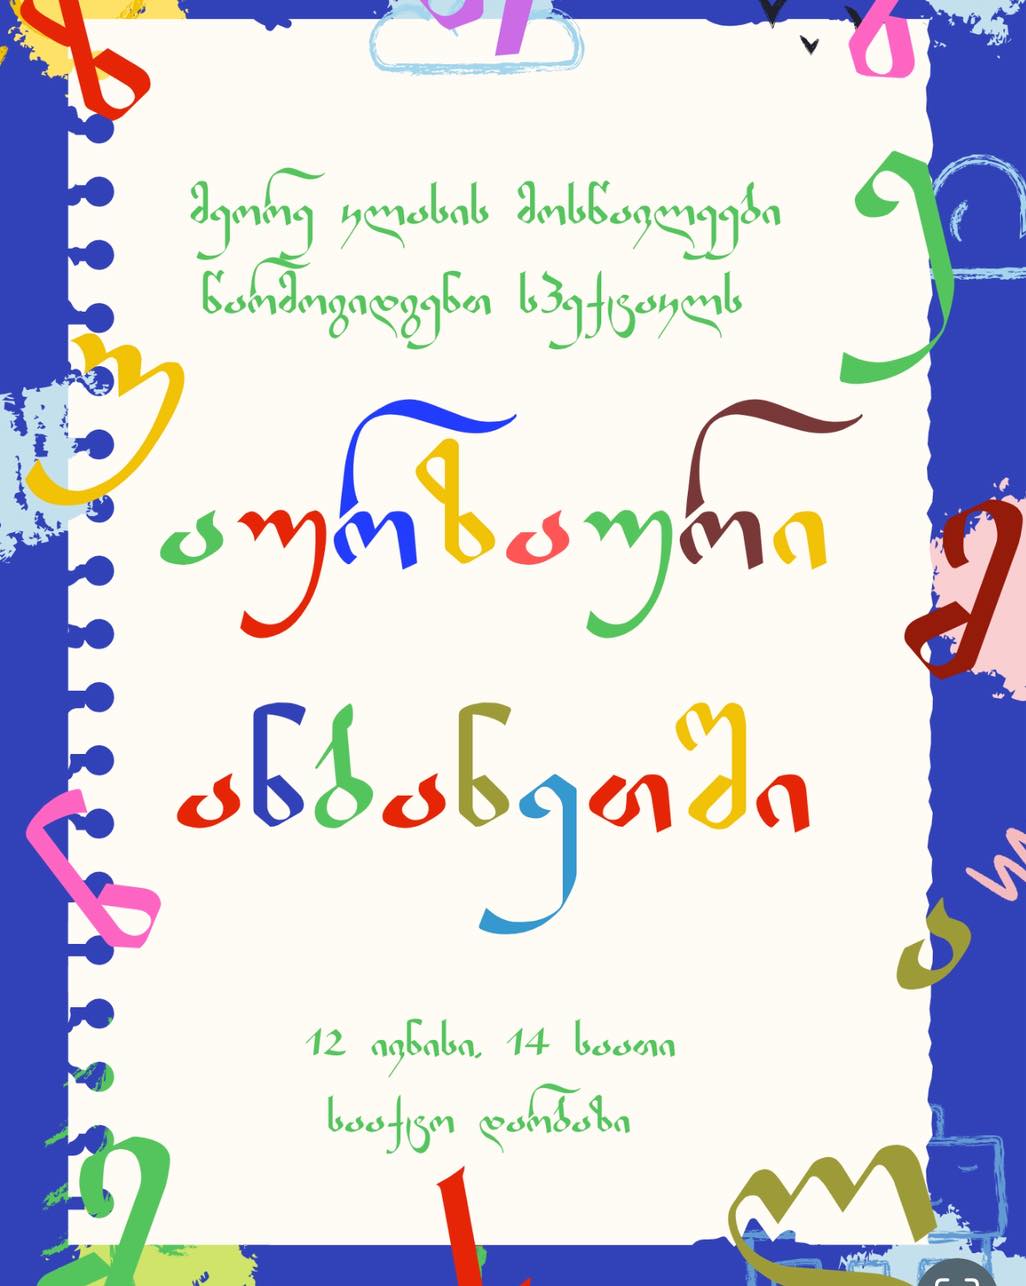 მეორე კლასის მოსწავლეები
წარმოგიდგენთ სპექტაკლს
აურზაური
ანბანეთში
12 ივნისი, 14 საათი
სააქტო დარბაზი